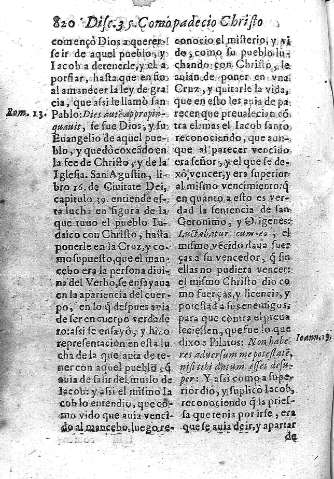 820 Disc. 35. Como padecio Christo
començò Dios a querer-
se ir de aquel pueblo, y
Iacob a detenerle, y el a
porfiar, hasta que en fin
al amanecer la ley de gracia
cia, que assi le llamò san
Rom. 13.
Pablo: Dies autẽ appropin-
quauit, se fue Dios, y su
Euangelio de aquel pueblo
y quedò coxeado en
la fee de Christo, y de la
Iglesia. San Agustin, libro
16. de Ciuitate Dei,
capitulo 39. entiende esta
lucha en figura de la
que tuuo el pueblo Iudaico
con Christo, hasta
ponerle en la Cruz, y como
supuesto, que el mancebo
era la persona diuina
del Verbo, se ensayaua
en la apariencia del cuerpo,
en lo q̃ despues auia
de ser en cuerpo verdadero:
assi se ensayò, y hizo
representacion en esta lucha
de la que auia de tener
con aquel pueblo, q̃
auia de salir del muslo de
Iacob: y assi el mismo Iacob
lo entendio, que como
vido que auia vencido
al mancebo, luego re-
conocio el misterio, y vido,
como su pueblo luchando
con Christo, le
auian de poner en vna
Cruz, y quitarle la vida,
que en esto les auia de parecer
que preualecian contra
el mas el Iacob santo
reconociendo, que aunque
al parecer vencido,
era señor, y el que se dexò
vencer, y era superior
al mismo vencimiento: q̃
en quanto a esto es verdad
la sentencia de san
Geronimo, y Origenes:
Luctabatur cum eo, el
mismo vécido daua fuerças
a su vencedor, q̃ sin
ellas no pudiera vencer:
el mismo Christo dio como
fuerças, y licencia, y
potestad a sus enemigos,
para que contra el preualeciessen,
que fue lo que
Ioann. 19.
dixo a Pilatos: Non haberes
aduersum me potestatẽ,
nisi tibi datum esset desuper:
Y assi como a superior
dio, y suplicò Iacob,
reconociendo q̃ la priessa
que tenia por irse, era
que se auia de ir, y apartar
de